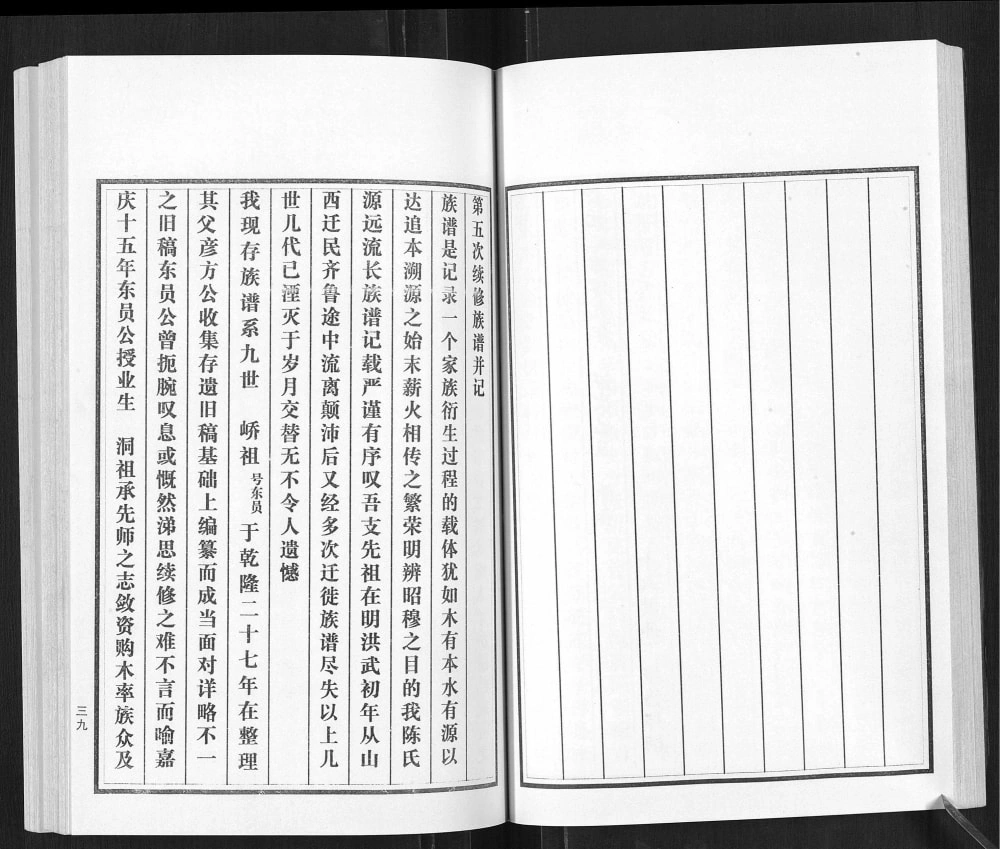 第五次续修族谱并记
族谱是记录一个家族衍生过程的载体犹如木有本水有源以
达追本溯源之始末薪火相传之繁荣明辨昭穆之目的我陈氏
源远流长族谱记载严谨有序叹吾支先祖在明洪武初年从山
西迁民齐鲁途中流离颠沛后又经多次迁徙族谱尽失以上几
世几代已湮灭于岁月交替无不令人遗憾
我现存族谱系九世 峤祖号东员于乾隆二十七年在整理
其父彦方公收集存遗旧稿基础上编纂而成当面对详略不一
之旧稿东员公曾扼腕叹息或慨然涕思续修之难不言而喻嘉
庆十五年东员公授业生 洞祖承先师之志敛资购木率族众及
三九